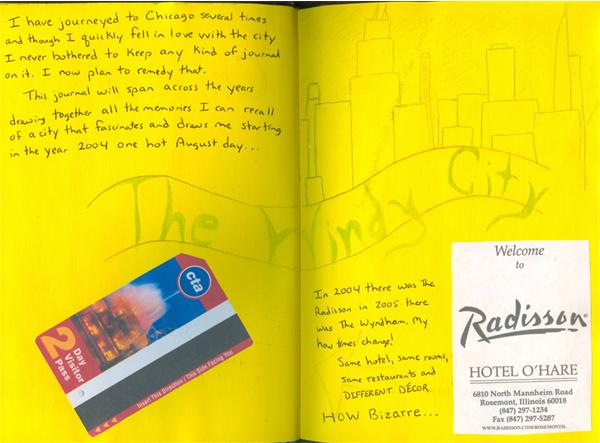 I have journeyed to Chicago several times
and though I quickly fell in love with the city
I never bothered to keep any kind of journal
on it. I now plan to remedy that.
This journal will span across the years
drawing together all the memories I can recall
of a city that fascinates and draws me starting
in the year 2004 one hot August day...
The Windy City
cta
2 Day
Visitor
Pass
Insert This Direction / This Side Facing You
In 2004 there was The
Radisson in 2005 there
was The Wyndham. My
how times change!
Same hotel, same rooms,
same restaurants and
DIFFERENT DÉCOR
HOW Bizarre...
Welcome
to
Radisson
HOTEL O'HARE
6810 North Mannheim Road
Rosemont, Illinois 60018
(847) 297-1234
Fax (847) 297-5287
WWW.RADISSON.COM/ROSEMONTIL